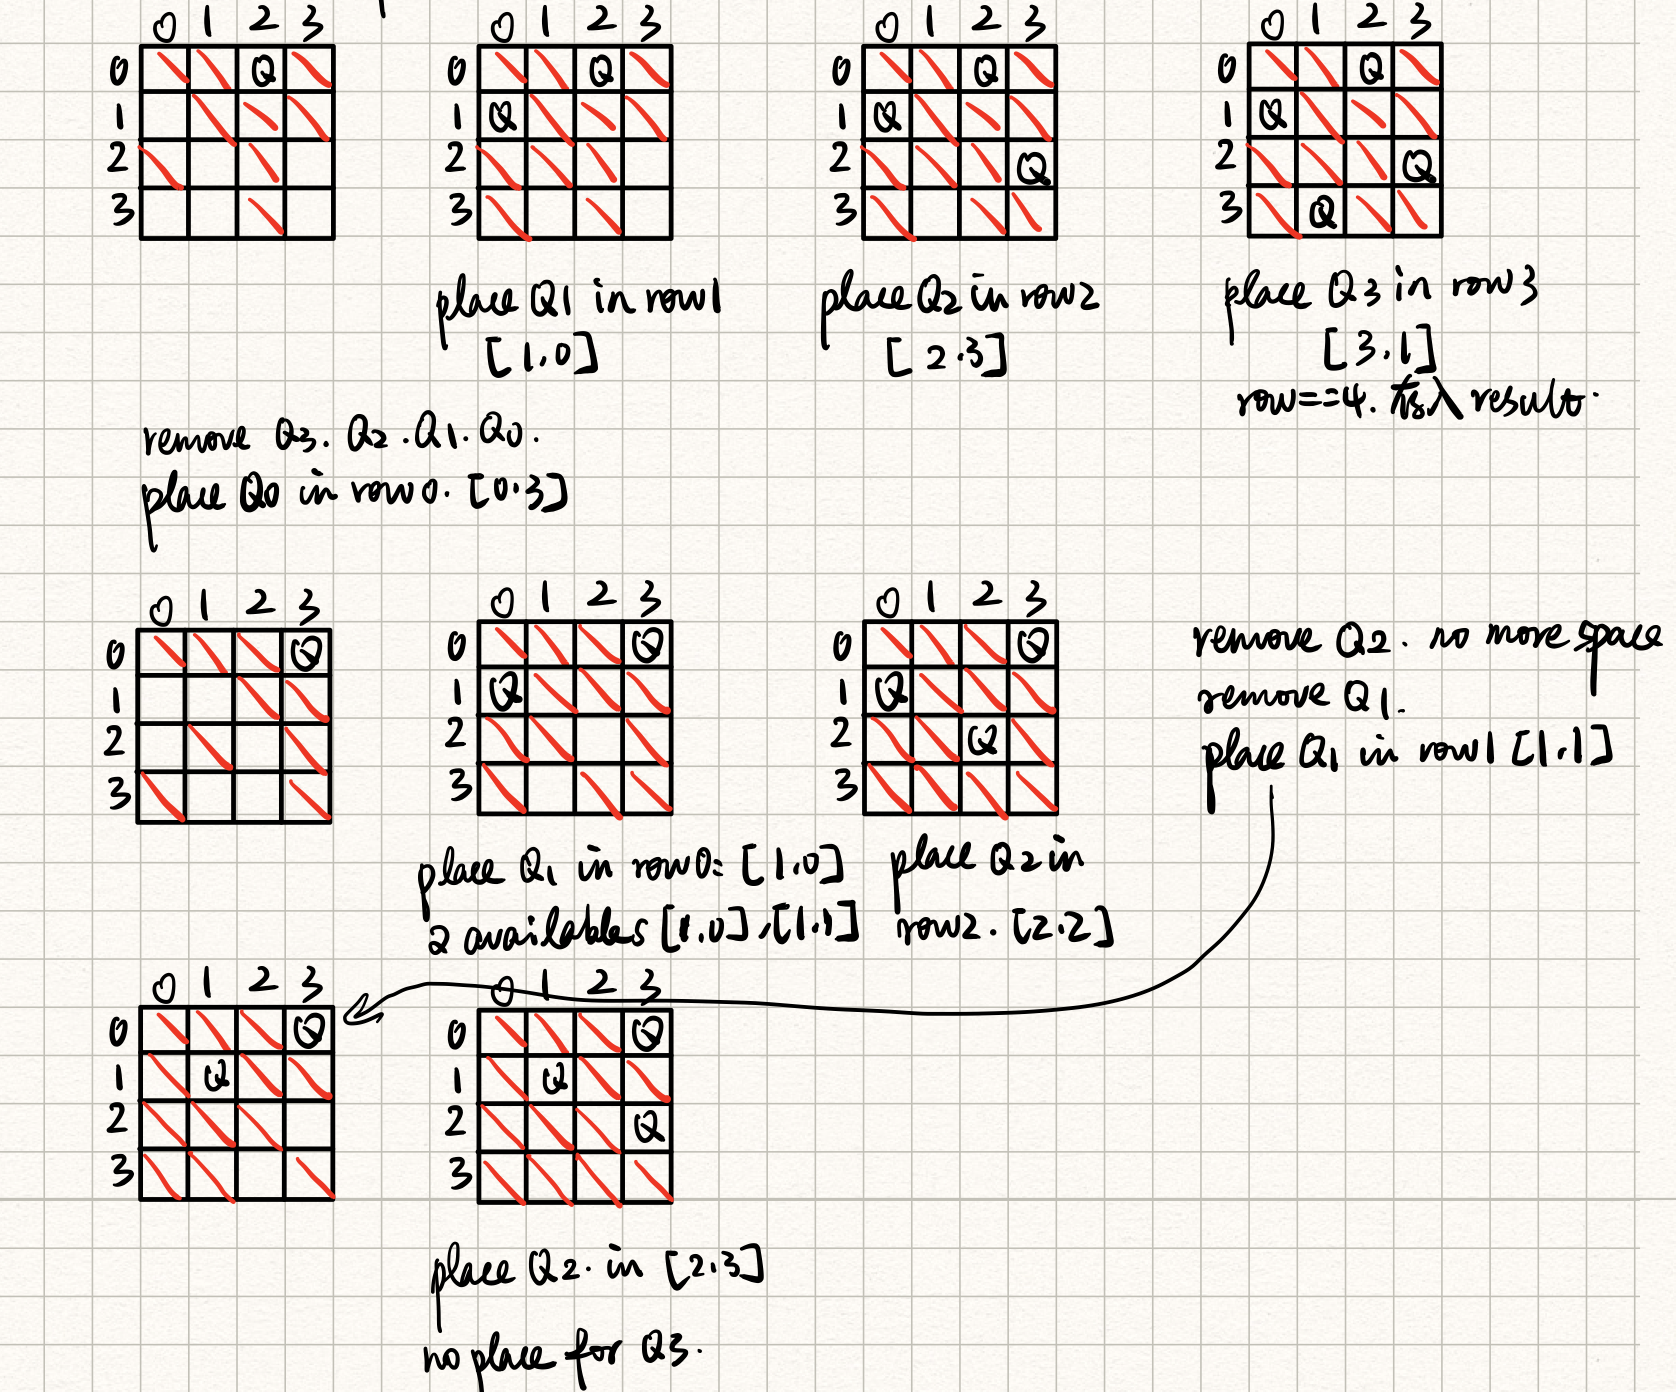 0 1 2 3
0 Q
1
2
3
0 1 2 3
0 Q
1 Q
2
3
place Q1 in row1
[1,0]
0 1 2 3
0 Q
1 Q
2 Q
3
place Q2 in row2
[2.3]
0 1 2 3
0 Q
1 Q
2 Q
3 Q
place Q3 in row3
[3.1]
row==4. 存入 result.
remove Q3. Q2. Q1. Q0.
place Q0 in row0. [0.3]
0 1 2 3
0 Q
1
2
3
0 1 2 3
0 Q
1 Q
2
3
place Q1 in row0: [1.0]
2 availables [1.0], [1.1]
0 1 2 3
0 Q
1 Q
2 Q
3
place Q2 in
row2. [2.2]
remove Q2. no more space
remove Q1.
place Q1 in row1 [1.1]
0 1 2 3
0 Q
1 Q
2
3
0 1 2 3
0 Q
1 Q
2 Q
3
place Q2. in [2.3]
no place for Q3.